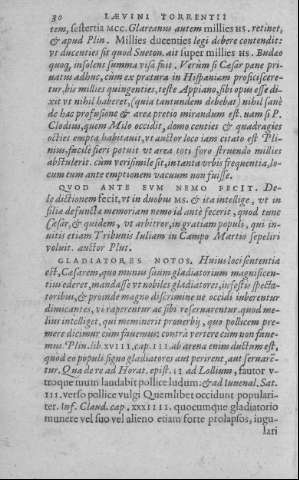 30 LÆVINI TORRENTII
tem, sestertia MCC. Glareanus autem millies HS. retinet,
& apud Plin. Millies ducenties legi debere contendit:
vt ducenties sit quod Sueton. ait super millies HS. Budæo
quoq, insolens summa visa fuit. Verum si Cæsar pane pri-
uatus adhuc, cum ex prætura in Hispaniam proficiscere-
tur, bis millies quingenties, teste Appiano, sibi opus esse di-
xit vt nihil haberet, (quia tantundem debebat) nihil sanè
de hac profusione & area pretio mirandum est. nam si P.
Clodius, quem Milo occidit, domo centies & quadragies
octies empta habitauit, vt auctor loco iam citato est Pli-
nius, facile fieri potuit vt area toti foro struendo millies
abstulerit. cum verisimile sit, in tanta vrbis frequentia, lo-
cum eum ante emptionem vacuum non fuisse.
QVOD ANTE EVM NEMO FECIT. De-
le dictionem fecit, vt in duobus MS. & ita intellige, vt in
filiæ defuncta memoriam nemo id ante fecerit, quod tunc
Cæsar, & quidem, vt arbitror, in gratiam populi, qui in-
uitis etiam Tribunis Iuliam in Campo Martio sepeliri
voluit. auctor Plut.
GLADIATORES NOTOS. Huius loci sententia
est, Cæsarem, quo munus suum gladiatorium magnificen-
tius ederet, mandasse vt nobiles gladiatores, infestis specta-
toribus, & proinde magno discrimine ne occidi iuberentur
dimicantes, vi raperentur ac sibi reseruarentur. quod me-
lius intelliget, qui meminerit prouerbij, quo pollicem pre-
mere dicimur cum fauemus; contrà vertere cum non faue-
mus. Plin. lib. XVIII, cap. III. ab arena enim ductum est,
quod eo populi signo gladiatores aut perirent, aut seruarē-
tur. Qua de re ad Horat. epist. II ad Lollium, fautor v-
troque tuum laudabit pollice ludum: & ad Iuuenal. Sat.
III. verso pollice vulgi Quemlibet occidunt populari-
ter. Inf. Claud. cap. XXXIIII. quocumque gladiatorio
munere vel suo vel alieno etiam forte prolapsos, iugu-
lari